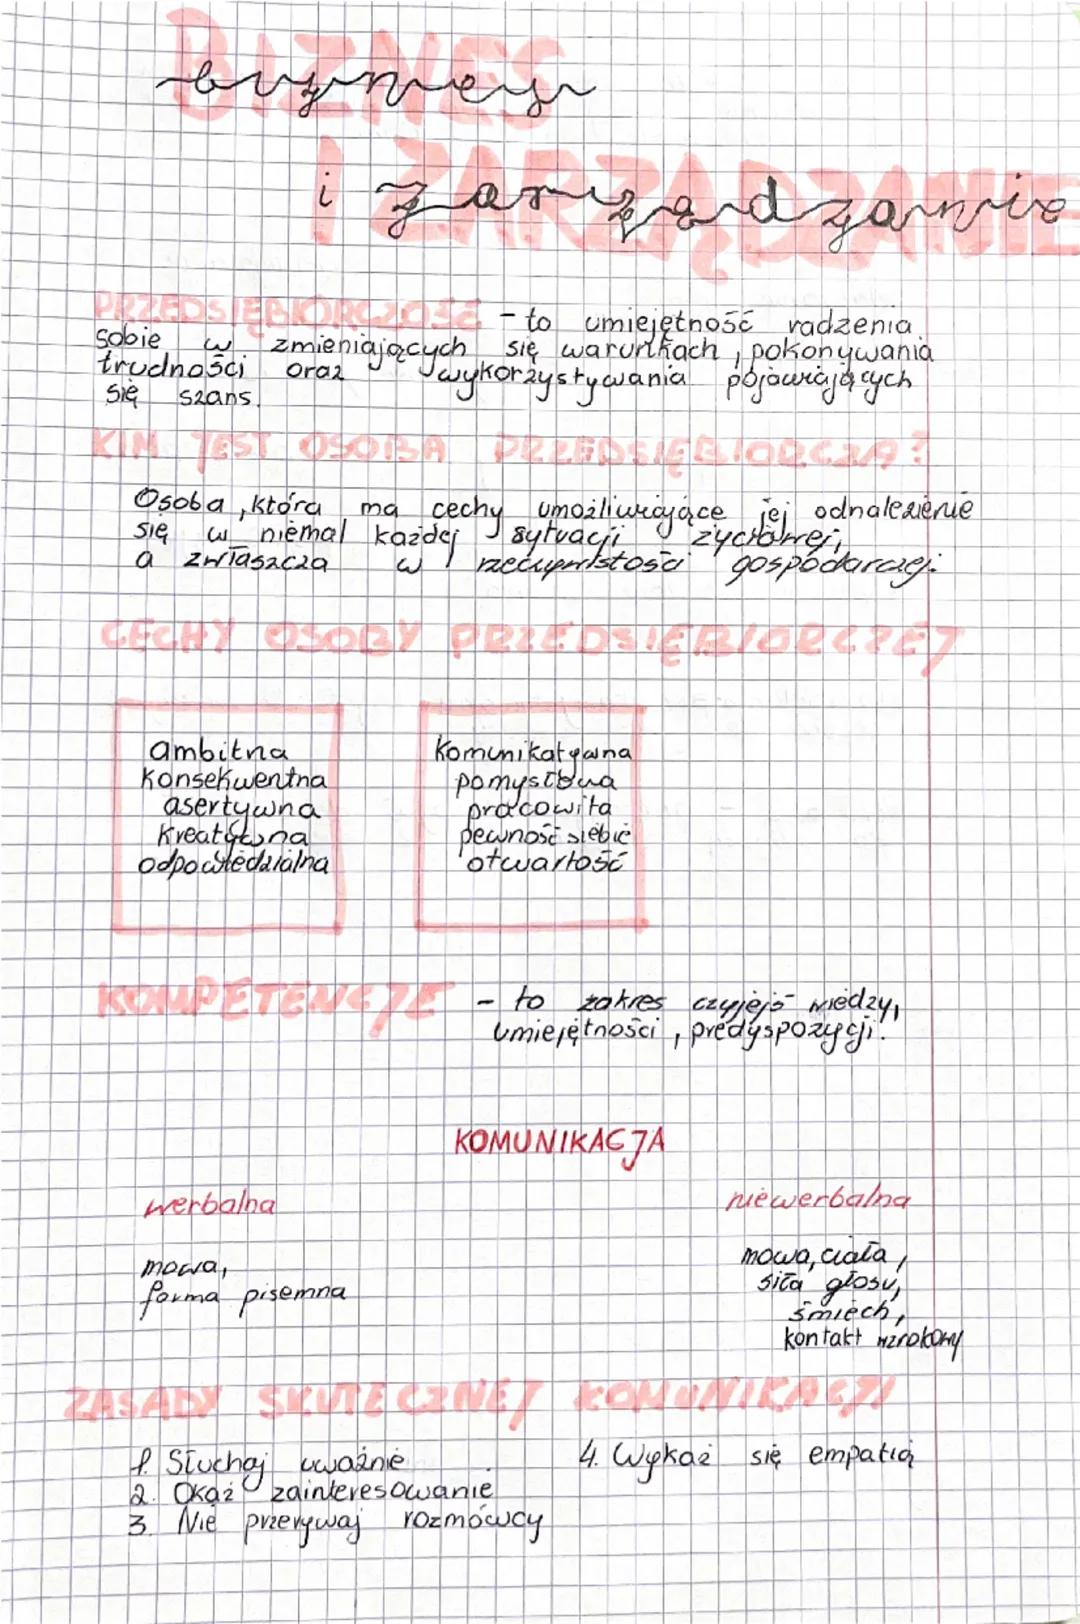 BIZNES
biznes
I ZARZĄDZANIE
i zarządzanie
PRZEDSIĘBIORCZOŚĆ - to umiejętność radzenia
sobie w zmieniających się warunkach, pokonywania
trudności oraz wykorzystywania pojawiających
się szans.
KIM JEST OSOBA PRZEDSIĘBIORCZA?
Osoba, która ma cechy umożliwiające jej odnalezienie
się w niemal każdej sytuacji życiowej,
a zwłaszcza w rzeczywistości gospodarczej.
CECHY OSOBY PRZEDSIĘBIORCZEJ
ambitna
konsekwentna
asertywna
kreatywna
odpowiedzialna
komunikatywna
pomysłowa
pracowita
pewność siebie
otwartość
KOMPETENCJE - to zakres czyjejś wiedzy,
umiejętności, predyspozycji.
KOMUNIKACJA
werbalna
niewerbalna
mowa,
forma pisemna
mowa, ciała,
siła głosu,
śmiech,
kontakt wzrokowy
ZASADY SKUTECZNEJ KOMUNIKACJI
1. Słuchaj uważnie
2. Okaż zainteresowanie
3. Nie przerywaj rozmówcy
4. Wykaż się empatią